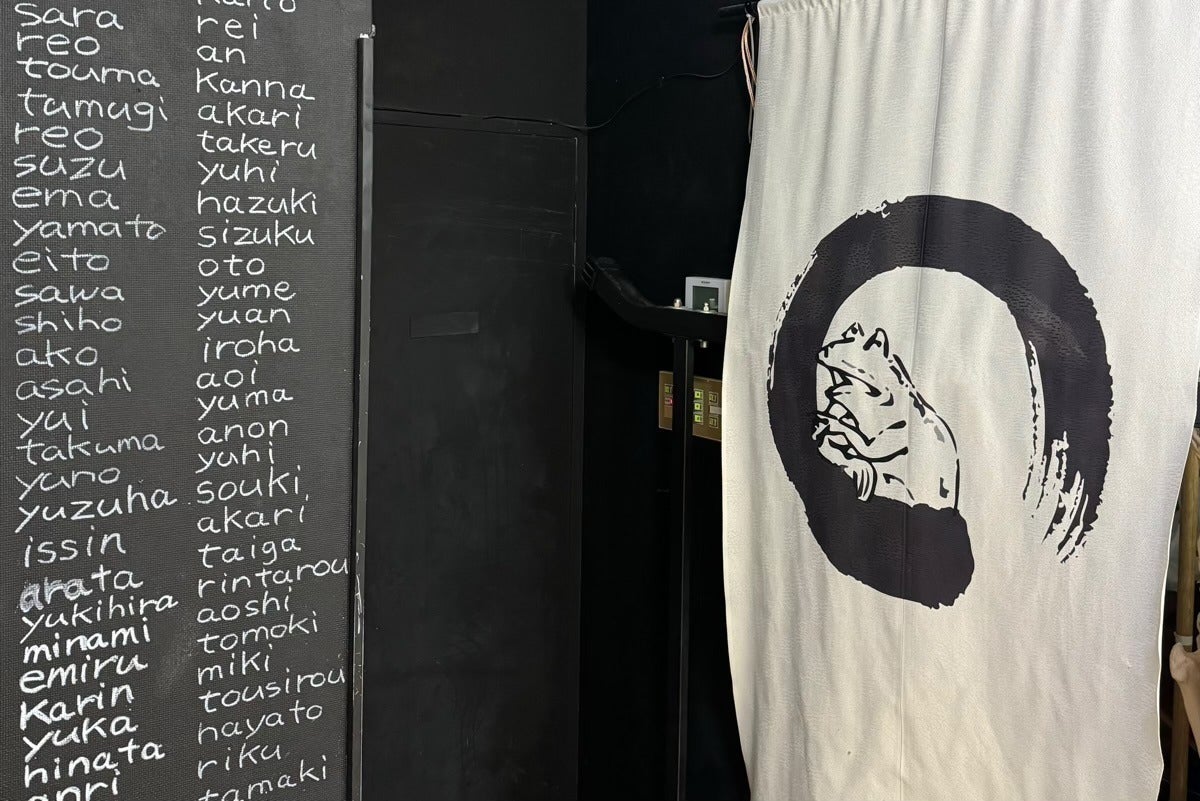 sara
reo
touma
tumugi
reo
suzu
ema
yamato
eito
sawa
shiho
ako
asahi
yui
takuma
yuno
yuzuha
issin
arata
yukihira
minami
emiru
Karin
yuka
hinata
rei
an
Kanna
akari
takeru
yuhi
hazuki
sizuku
oto
yume
yuan
iroha
aoi
yuma
anon
yuhi
souki
akari
taiga
rintarou
aoshi
tomoki
miki
tousirou
hayato
riku
tamaki